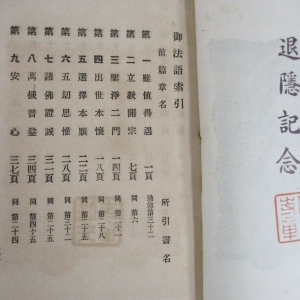 退隱記念
御法語索引
前篇章名 所引書名
第一 難値得遇 一頁 勅傳第三十二
第二 立教開宗 七頁 同 第六
第三 聖淨二門 一四頁 同 第二十一
第四 出世本懷 一八頁 同 第二十八
第五 選擇本願 二二頁 同 第二十五
第六 五劫思惟 二八頁 同 第三十二
第七 諸佛證誠 三一頁 同 第二十五
第八 萬機普益 三四頁 同 第四十五
第九 安心 三七頁 同 第二十四